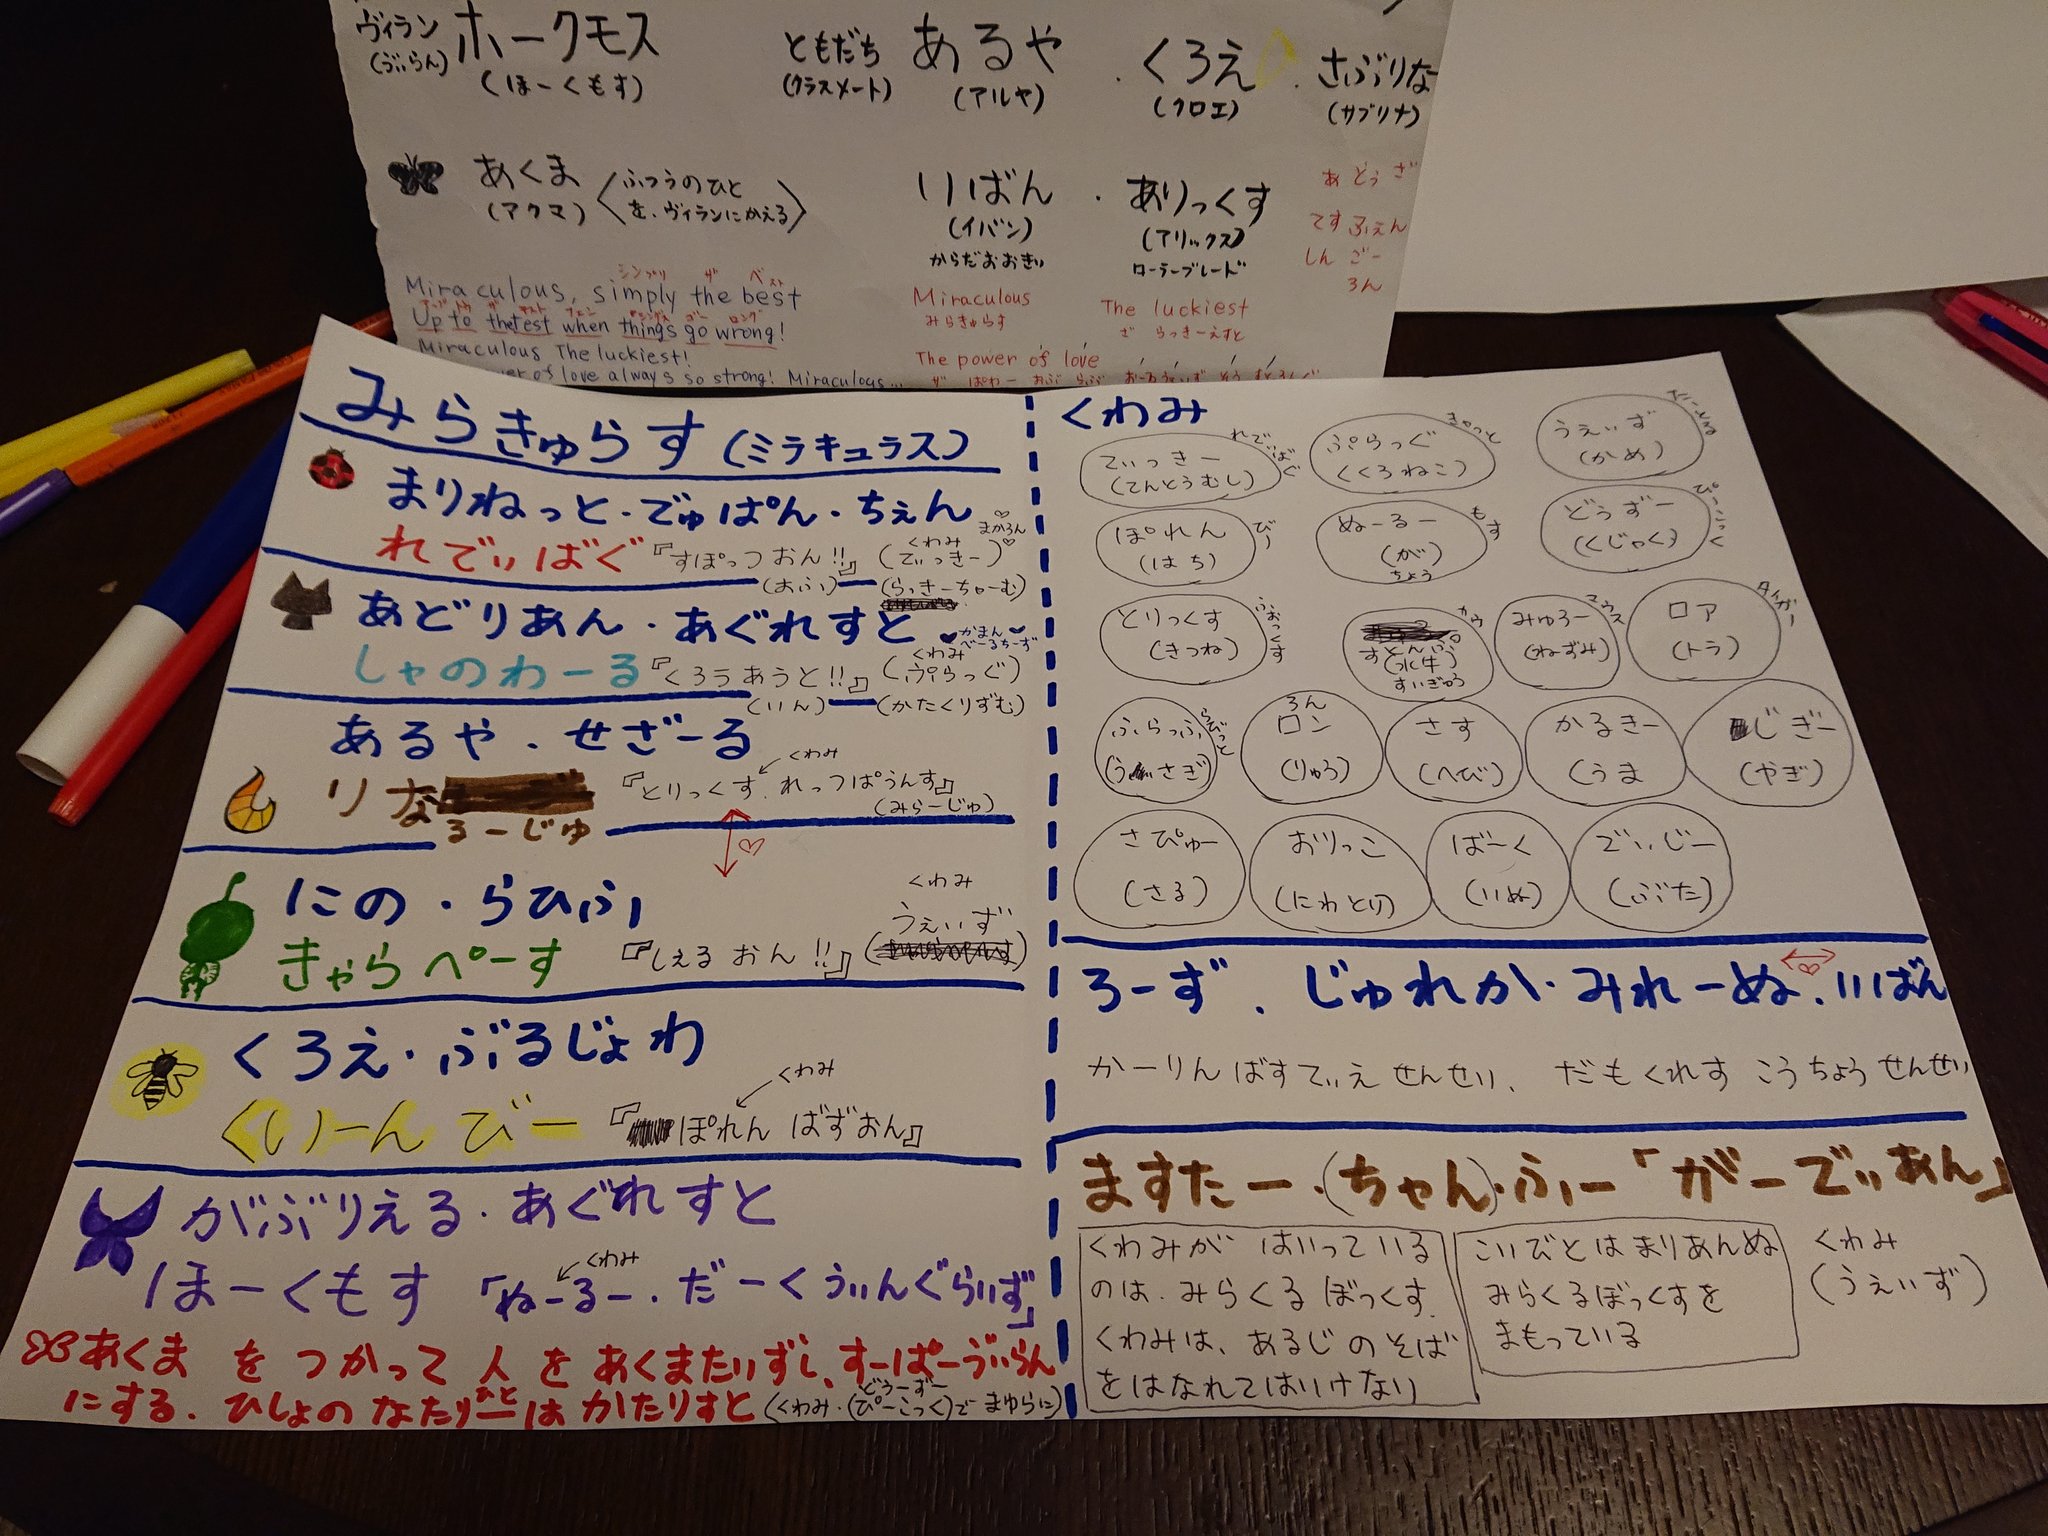 ヴィラン
(ゔぃらん)
ホークモス
(ほーくもす)
ともだち
(クラスメート)
あるや
(アルヤ)
・くろえ
(クロエ)
・さぶりな
(サブリナ)
あくま
(アクマ)
ふつうのひと
を、ヴィランにかえる
いばん
(イバン)
からだおおきい
・ありっくす
(アリックス)
ローラーブレード
あ どぅ ざ
てす ふぇん
しん ごー
ろん
シンプリ ザ ベスト
Miraculous, simply the best
Up to the test when things go wrong!
Miraculous The luckiest!
of love always so strong! Miraculous...
Miraculous
みらきゅらす
The luckiest
ざ らっきーえすと
The power of love
ざ ぱわー おぶ らぶ
みらきゅらす(ミラキュラス)
まりねっと・でゅぱん・ちぇん
まかろん
れでぃばぐ『すぽっつ おん!!』(てぃっきー)
くわみ
(おふ)
(らっきーちゃーむ)
あどりあん・あぐれすと
かまん
べーるちーず
しゃのわーる『くろう あうと!!』(ぷらっぐ)
くわみ
(いん)
(かたくりずむ)
あるや・せざーる
くわみ
りな
るーじゅ
『とりっくす、れっつぱうんす』
(みらーじゅ)
にの・らひふ
くわみ
きゃらぺーす
『しぇる おん!!』
うぇいず
くろえ・ぶるじょわ
くわみ
くいーん びー
『ぽれん ばずおん』
がぶりえる・あぐれすと
くわみ
ほーくもす「ぬーるー・だーくうぃんぐらいず」
あくま を つかって 人 を あくまたいずし、すーぱーゔぃらん
にする。ひしょの なたりーは かたりすと
ひと
どぅーずー
(くわみ・(ぴーこっく)で まゆらに)
くわみ
てぃっきー
(てんとうむし)
れでぃばぐ
ぷらっぐ
(くろねこ)
きゃっと
うぇいず
(かめ)
たーとる
ぽれん
(はち)
びー
ぬーるー
(が)
ちょう
もす
どぅずー
(くじゃく)
ぴーこっく
とりっくす
(きつね)
ふぉっくす
すとんぷ
(水牛)
すいぎゅう
カウ
みゅろー
(ねずみ)
マウス
ロア
(トラ)
タイガー
ふらっふ
(うさぎ)
らびっと
ろん
ロン
(りゅう)
さす
(へび)
かるきー
(うま
じぎー
(やぎ)
さぴゅー
(さる)
おりっこ
(にわとり)
ばーく
(いぬ)
でぃじー
(ぶた)
ろーず、じゅれか・みれーぬ、いばん
かーりん ばすてぃえ せんせい、だもくれす こうちょう せんせい
ますたー・(ちゃん)・ふー「がーでぃあん」
くわみが はいっている
のは、みらくる ぼっくす。
くわみは、あるじのそば
をはなれてはいけない
こいびとは まりあんぬ
みらくるぼっくすを
まもっている
くわみ
(うぇいず)